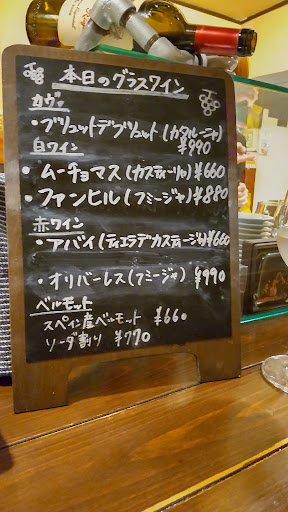 本日のグラスワイン
カヴァ
・ブリュットデブリュット(カタルーニャ)
¥990
白ワイン
・ムーチョマス(カスティーリャ)¥660
・ファンヒル(フミージャ)¥880
赤ワイン
・アバイ(ティエラデカスティージャ)¥660
・オリバーレス(フミージャ)¥990
ベルモット
スペイン産ベルモット ¥660
ソーダ割り ¥770